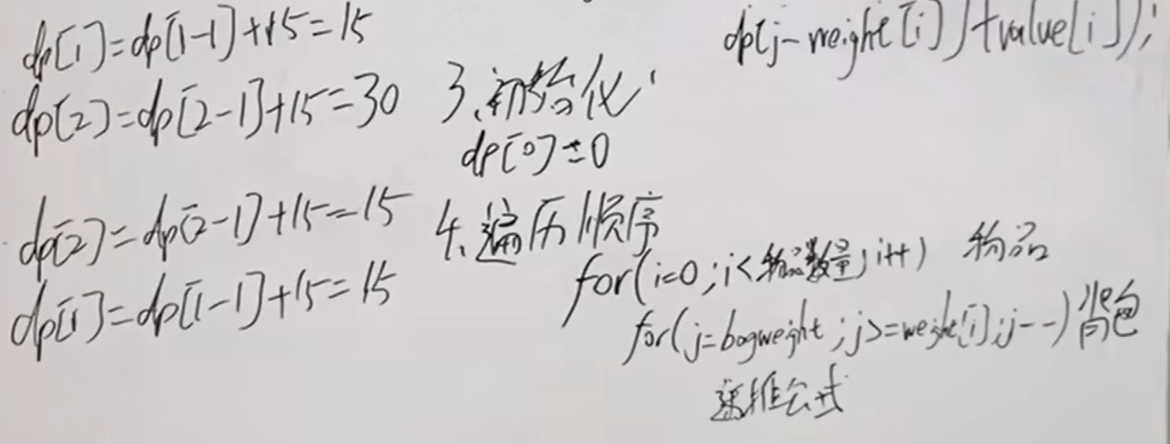 dp[1]=dp[1-1]+15=15
dp[2]=dp[2-1]+15=30
dp[2]=dp[2-1]+15=15
dp[1]=dp[1-1]+15=15
dp[j-weight[i]]+value[i]);
3、初始化
dp[0]=0
4、遍历顺序
for(i=0;i<物品数量;i++) 物品
for(j=bagweight;j>=weight[i];j--) 背包
递推公式